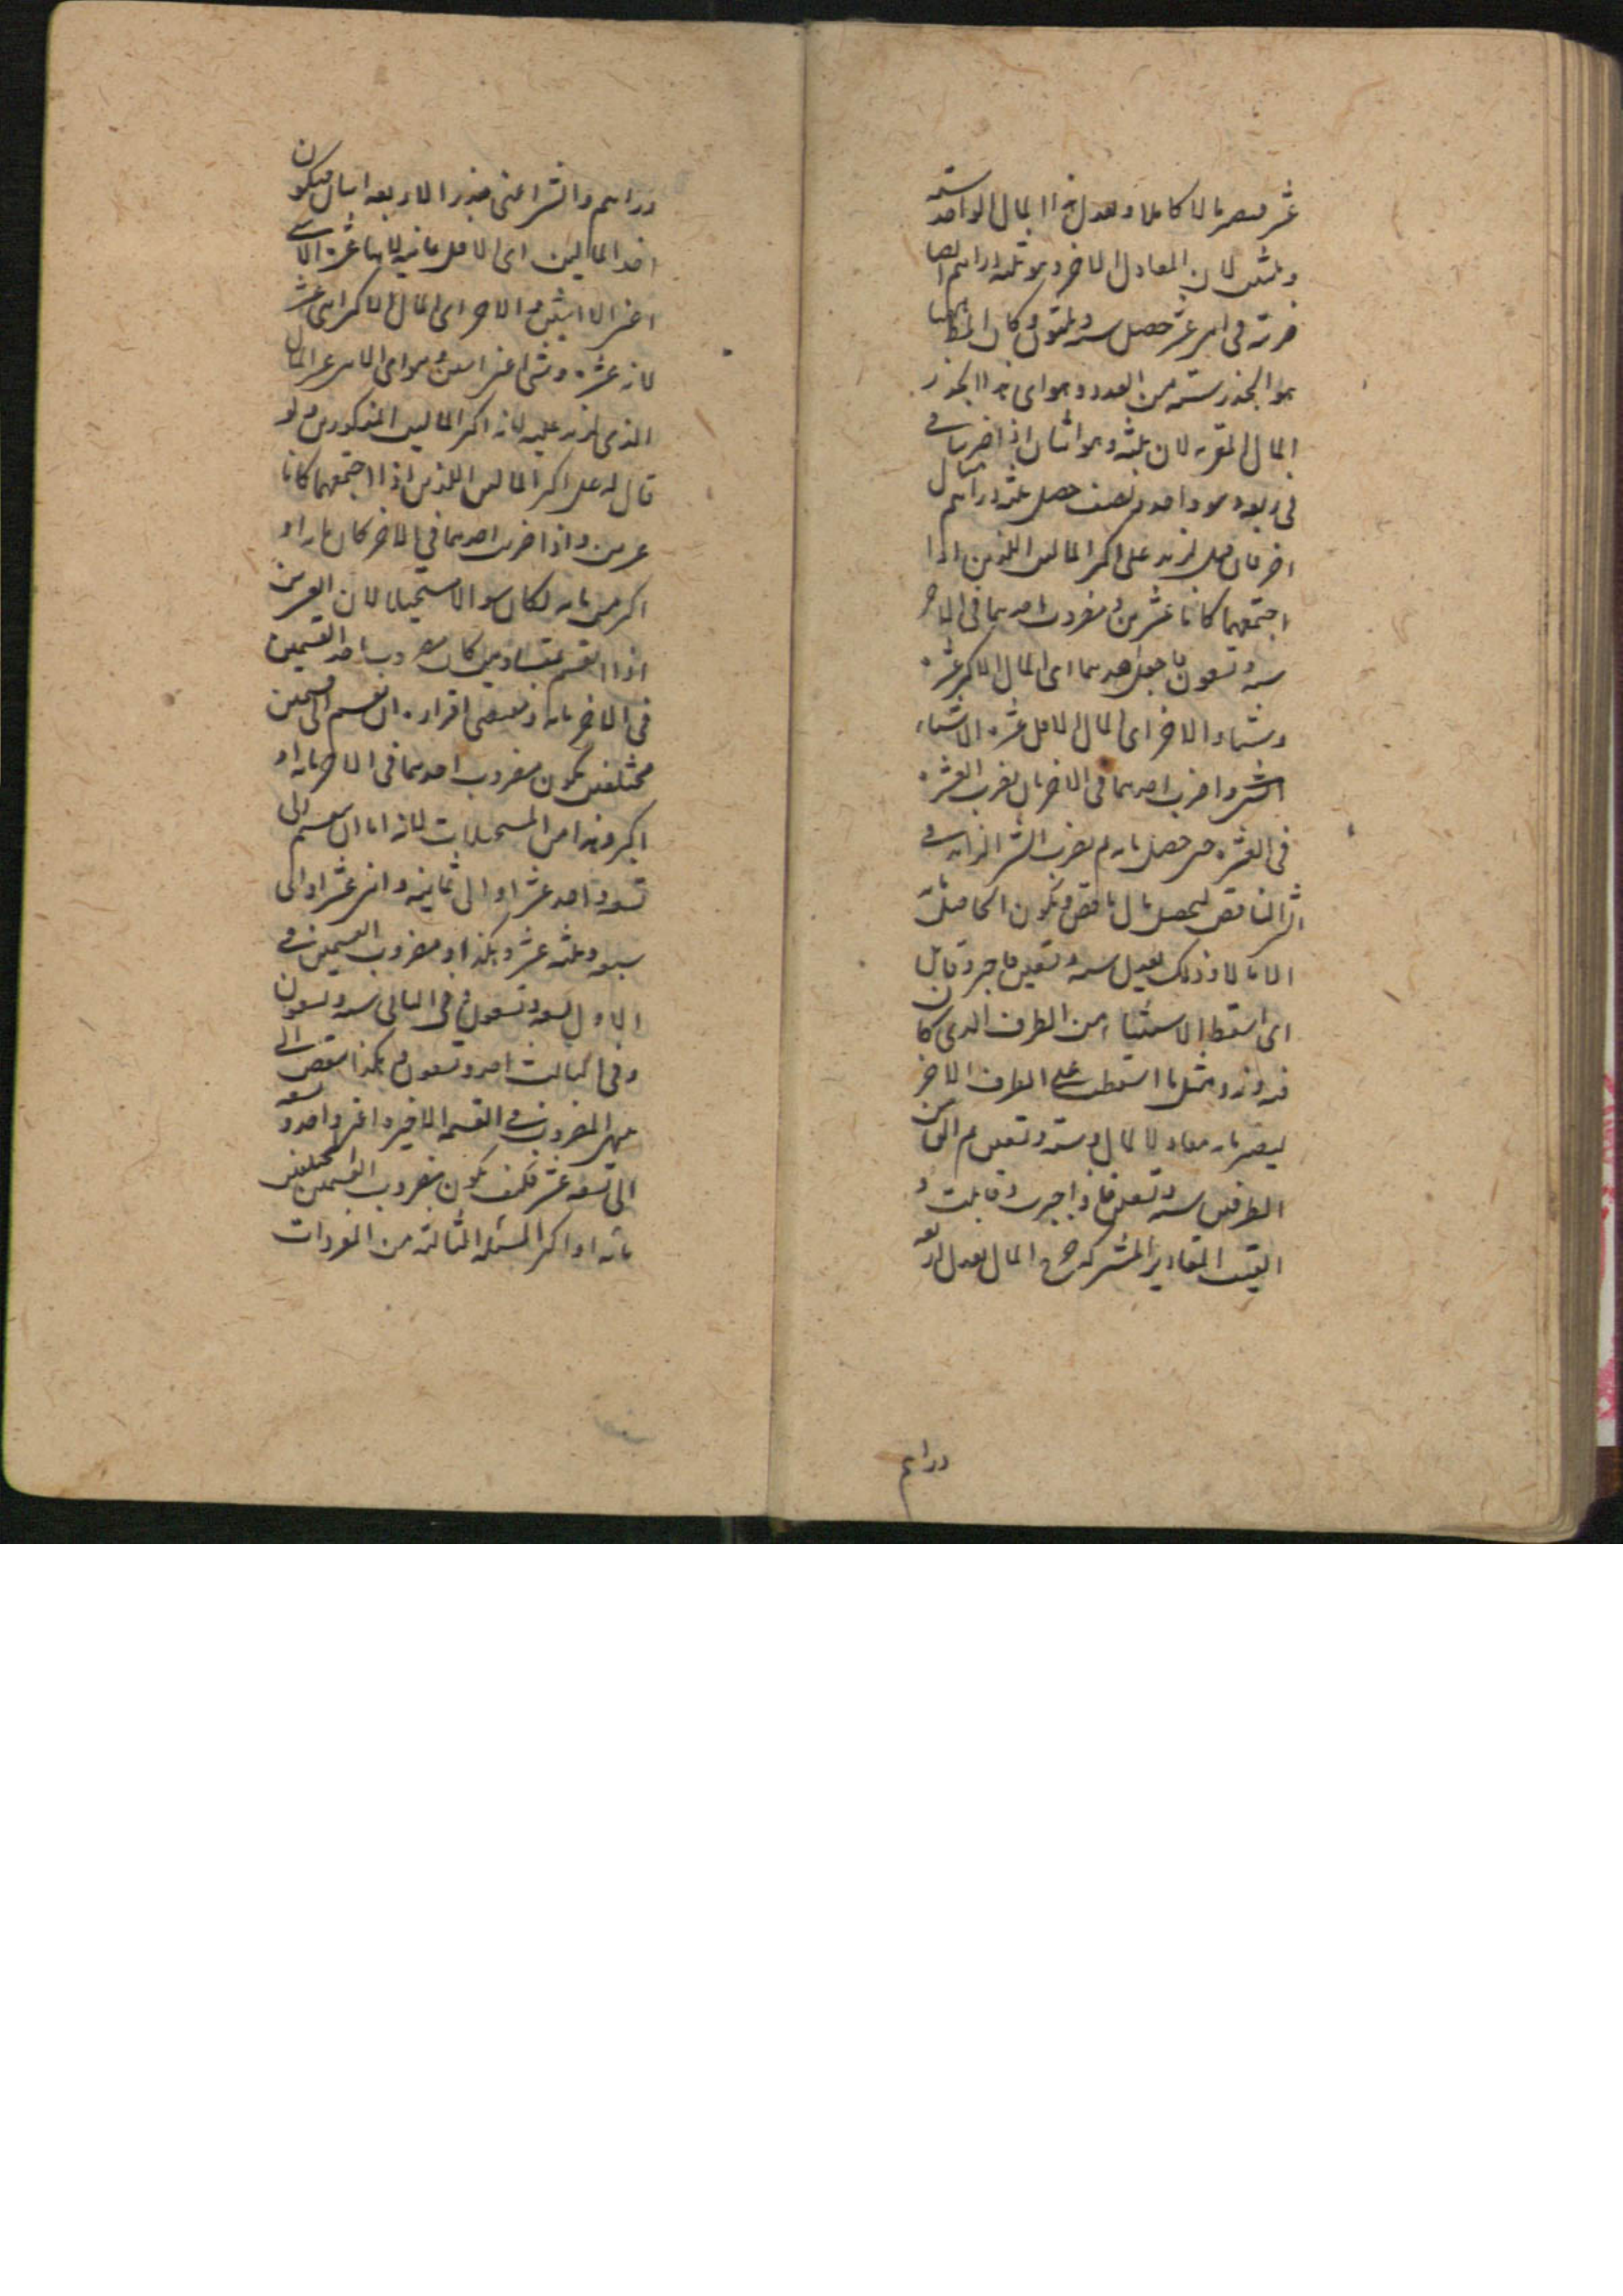 عشر فيصير مالا كاملا ويعدل هذا المال الواحد ستة
وثلثين لان المعادل الاخر وهو ثلثة دراهم ايضا
ضربته في اثنى عشر حصل ستة وثلثون وكان
هو الجذر ستة من العدد وهو اى هذا الجذر
المال المقر به لان ثلثه وهو اثنان اذا ضربناه في
في ربعه وهو واحد ونصف حصل ثلثة دراهم مثال
اخر فان قيل لزيد على اكثر المالين اللذين اذا
اجتمعهما كانا عشرين ومضروب احدهما في الاخر
ستة وتسعون فاجعل احدهما اى المال الاكثر عشرة
وشيئا والاخر اى المال الاقل عشرة الا شيئا
واضرب احدهما في الاخر بان يضرب العشرة
في العشرة حتى حصل مائة ثم يضرب الشئ الزايد في
الشئ الناقص ليحصل مال ناقص فيكون الحاصل مائة
الا مالا وذلك يعدل ستة وتسعين فاجبر وقابل
اى اسقط الاستثناء من الطرف الذى كان
فيه وزد مثل ما اسقطت على الطرف الاخر
ليصير مائة معادلا لمال وستة وتسعين ثم الق من
الطرفين ستة وتسعين فاذا جبرت وقابلت و
القيت المقادير المشتركة المال يعدل اربعة
دراهم
دراهم والشئ اعنى جذر الاربعة اثنان فيكون
احد المالين اى الاقل ثمانية لانها عشرة الا شئ
اعنى الا اثنين والاخر اى المال الاكثر اثنى عشر
لانه عشرة وشئ اعنى اثنين وهو اى الاثنى عشر المال
الذى لزيد عليه لانه اكثر المالين المذكورين ولو
قال له على اكثر المالين اللذين اذا اجتمعهما كانا
عشرين واذا ضربت احدهما في الاخر كان مائة او
اكثر من مائة لكان سوالا مستحيلا لان العشرين
اذا انقسم بمتساويين كان مضروب احد القسمين
في الاخر مائة ويقتضى اقراره ان ينقسم الى قسمين
مختلفين يكون مضروب احدهما في الاخر مائة او
اكثر وهذا من المستحيلات لانه اما ان ينقسم الى
تسعة واحد عشر او الى ثمانية واثنى عشر او الى
سبعة وثلثة عشر وهكذا ومضروب القسمين في
الاول تسعة وتسعون وفي الثانى ستة وتسعون
وفي الثالث احد وتسعون وهكذا ينقص الى
المضروب في القسمة الاخيرة اعنى واحد و تسعة
الى تسعة عشر فكيف يكون مضروب القسمين المختلفين
مائة او اكثر المسئلة الثالثة من المفردات